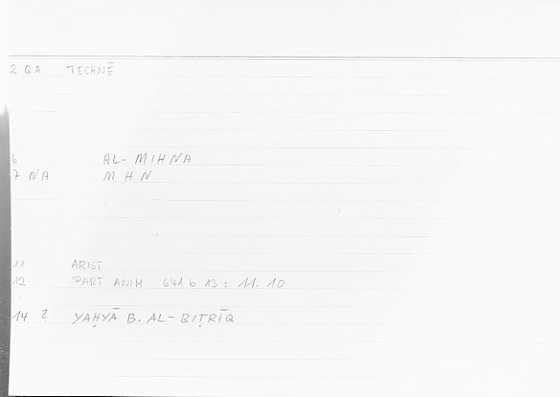 2 QA TECHNĒ
6 AL-MIHNA
7 NA MHN
11 ARIST
12 PART ANIM 641 b 13 : 11.10
14 2 YAḤYĀ B. AL-BIṬRĪQ